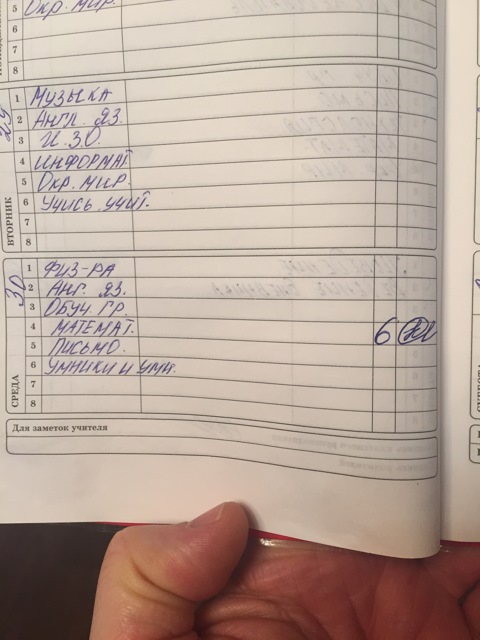 5 Окр. мир.
6
7
8
ВТОРНИК
29
1 Музыка
2 Англ. яз.
3 И.ЗО.
4 Информат.
5 Окр. мир.
6 Учись учит.
7
8
СРЕДА
30
1 Физ-ра
2 Анг. яз.
3 Обуч. гр.
4 Математ. 6
5 Письмо.
6 Умники и умн.
7
8
Для заметок учителя